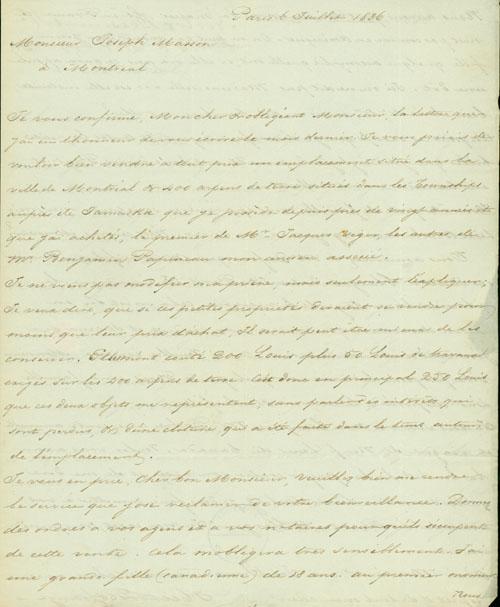 Paris 6 Juillet 1836
Monsieur Joseph Masson
à Montréal
Je vous confirme, Mon cher & obligeant Monsieur, la lettre que
j'ai eu l'honneur de vous écrire le mois dernier. Je vous priais de
vouloir bien vendre à tout prix un emplacement situé dans la
ville de Montréal & 400 arpens de terre situés dans les Townships
auprès de Yamaska que je possède depuis près de vingt années et
que j'ai achetés, le premier de Mr. Jacques Viger, les autres de
Mr. Benjamin Papineau mon ancien associé.
Je ne veux pas modifier ma prière, mais seulement l'expliquer;
Je veux dire, que si ces petites propriétés devaient se vendre pour
moins que leur prix d'achat, il serait peut être mieux de les
conserver. Elles m'ont couté 200 Louis plus 50 Louis de travaux
exigés sur les 400 arpens de terre. C'est donc en principal 250 Louis
que ces deux objets me représentent, sans parler des intérêts qui
sont perdus, & d'une cloture qui a été faite dans le tems autour
de l'emplacement.
Je vous en prie, Cher bon Monsieur, veuillez bien me rendre
le service que j'ose réclamer de votre bienveillance. Donnez
des ordres à vos agens et à vos notaires pour qu'ils s'occupent
de cette vente. Cela m'obligera très sensiblement. J'ai
une grande fille (canadienne) de 18 ans. au premier moment
Nous